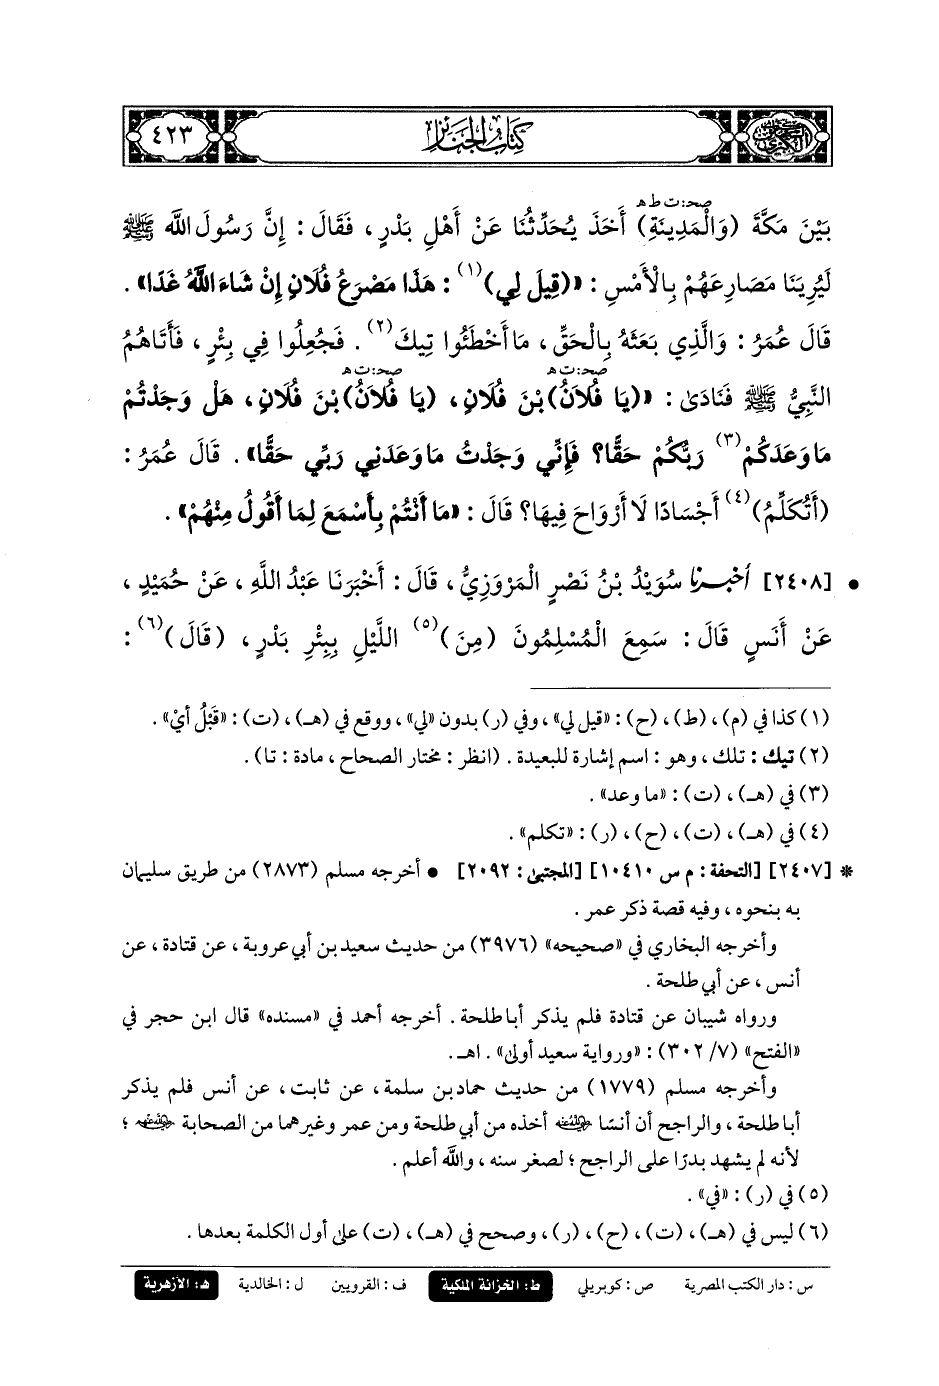 السنن الكبرى كتاب الجنائز ٤٢٣
صحـ: ت ط هـ
بَيْنَ مَكَّةَ (وَالْمَدِينَةِ) أَخَذَ يُحَدِّثُنَا عَنْ أَهْلِ بَدْرٍ، فَقَالَ: إِنَّ رَسُولَ اللَّه ﷺ
لَيُرِينَا مَصَارِعَهُمْ بِالْأَمْسِ: «(قِيلَ لِي)(١): هَذَا مَصْرَعُ فُلَانٍ إِنْ شَاءَ اللَّهُ غَدًا».
قَالَ عُمَرُ: وَالَّذِي بَعَثَهُ بِالْحَقِّ، مَا أَخْطَئُوا تِيكَ(٢). فَجُعِلُوا فِي بِئْرٍ، فَأَتَاهُمُ
صحـ: ت هـ صحـ: ت هـ
النَّبِيُّ ﷺ فَنَادَىٰ: «(يَا فُلَانُ) بْنَ فُلَانٍ، (يَا فُلَانُ) بْنَ فُلَانٍ، هَلْ وَجَدْتُمْ
مَا وَعَدَكُمْ(٣) رَبُّكُمْ حَقًّا؟ فَإِنِّي وَجَدْتُ مَا وَعَدَنِي رَبِّي حَقًّا». قَالَ عُمَرُ:
(أَتُكَلِّمُ)(٤) أَجْسَادًا لَا أَرْوَاحَ فِيهَا؟ قَالَ: «مَا أَنْتُمْ بِأَسْمَعَ لِمَا أَقُولُ مِنْهُمْ».
• [٢٤٠٨] أخبرنا سُوَيْدُ بْنُ نَصْرٍ الْمَرْوَزِيُّ، قَالَ: أَخْبَرَنَا عَبْدُ اللَّهِ، عَنْ حُمَيْدٍ،
عَنْ أَنَسٍ قَالَ: سَمِعَ الْمُسْلِمُونَ (مِنَ)(٥) اللَّيْلِ بِبِئْرِ بَدْرٍ، (قَالَ)(٦):
(١) كذا في (م)، (ط)، (ح): «قيل لي»، وفي (ر) بدون «لي»، ووقع في (هـ)، (ت): «قَبْلُ أيْ».
(٢) تيك: تلك، وهو: اسم إشارة للبعيدة. (انظر: مختار الصحاح، مادة: تا).
(٣) في (هـ)، (ت): «ما وعد».
(٤) في (هـ)، (ت)، (ح)، (ر): «تكلم».
* [٢٤٠٧] [التحفة: م س ١٠٤١٠] [المجتبى: ٢٠٩٢] • أخرجه مسلم (٢٨٧٣) من طريق سليمان
به بنحوه، وفيه قصة ذكر عمر.
وأخرجه البخاري في «صحيحه» (٣٩٧٦) من حديث سعيد بن أبي عروبة، عن قتادة، عن
أنس، عن أبي طلحة.
ورواه شيبان عن قتادة فلم يذكر أبا طلحة. أخرجه أحمد في «مسنده» قال ابن حجر في
«الفتح» (٧/ ٣٠٢): «ورواية سعيد أولى». اهـ.
وأخرجه مسلم (١٧٧٩) من حديث حماد بن سلمة، عن ثابت، عن أنس فلم يذكر
أبا طلحة، والراجح أن أنسًا رضي الله عنه أخذه من أبي طلحة ومن عمر وغيرهما من الصحابة رضي الله عنهم؛
لأنه لم يشهد بدرًا على الراجح؛ لصغر سنه، والله أعلم.
(٥) في (ر): «في».
(٦) ليس في (هـ)، (ت)، (ح)، (ر)، وصحح في (هـ)، (ت) على أول الكلمة بعدها.
س: دار الكتب المصرية ص: كوبريلي ط: الخزانة الملكية ف: القرويين ل: الخالدية هـ: الأزهرية